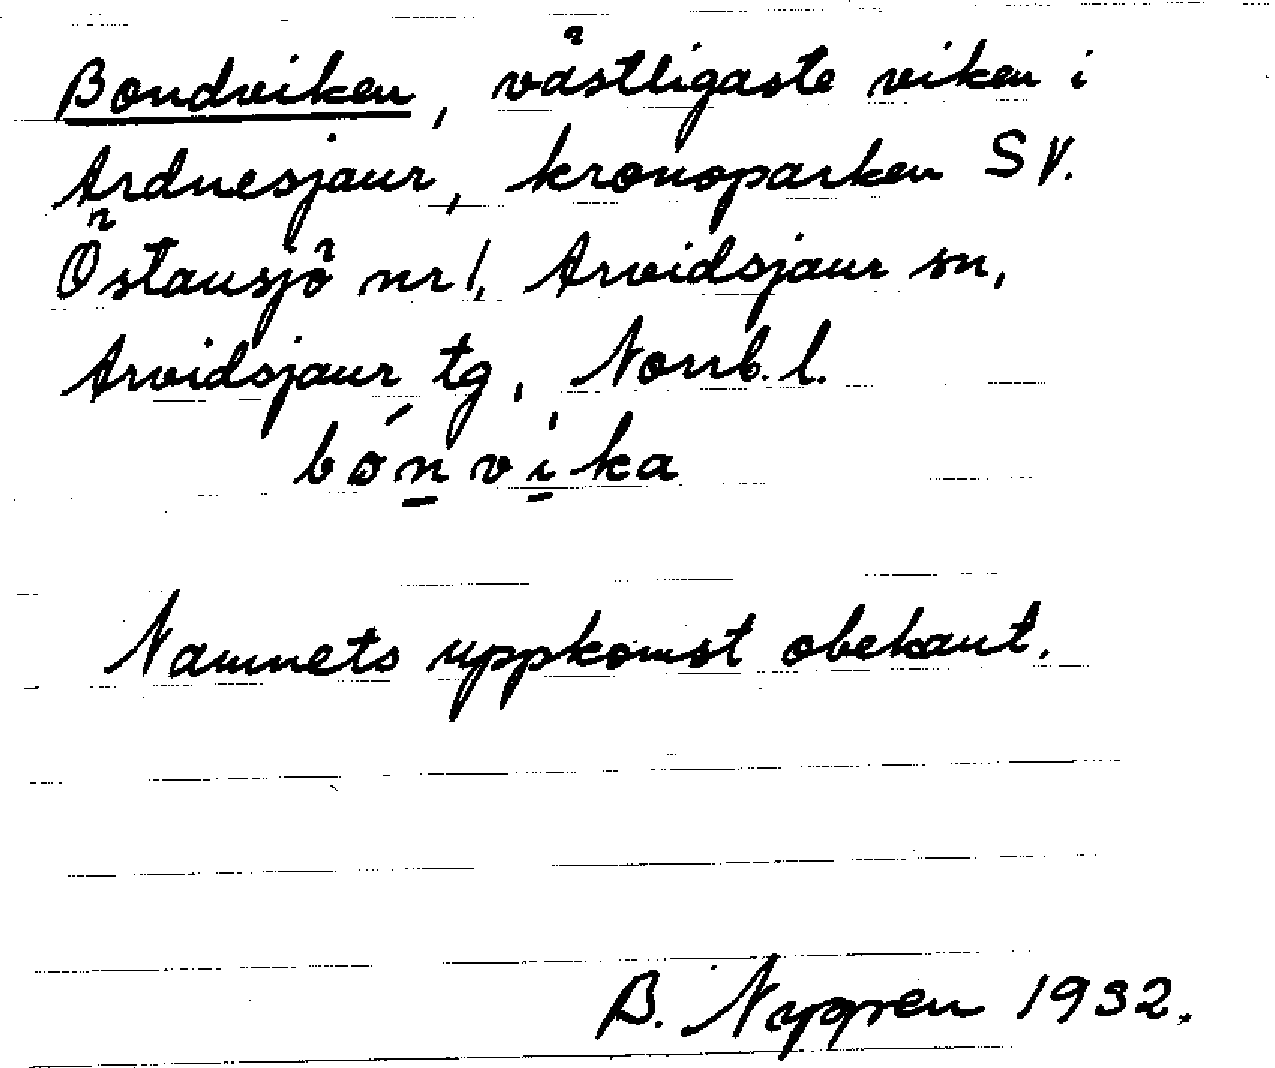 Bondviken, västligaste viken i
Ardnesjaur, kronoparken SV.
Östansjö nr 1, Arvidsjaur sn,
Arvidsjaur tg, Norrb. l.
bónvìka
Namnets uppkomst obekant.
B. Nygren 1932.